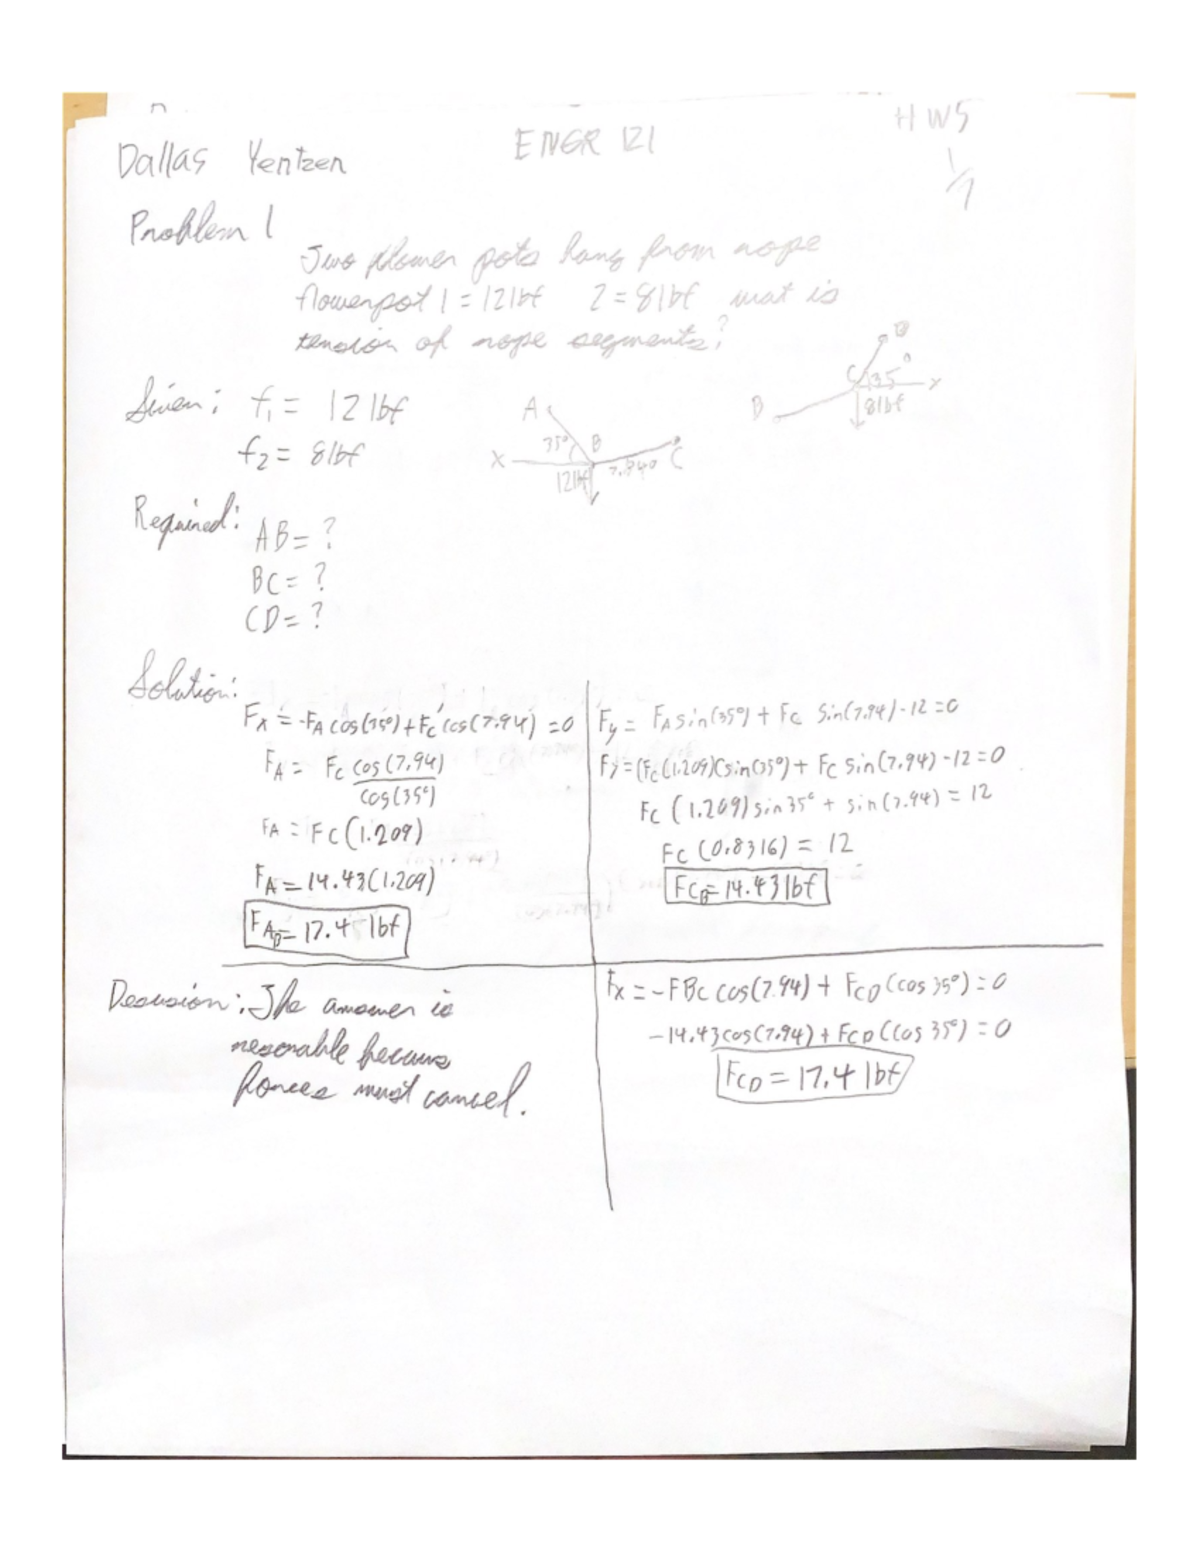 Dallas Yentzen ENGR 121 HW5
1/7
Problem 1
Two flower pots hang from rope
flowerpot 1 = 12 lbf 2 = 8 lbf what is
tension of rope segments?
Given: f1 = 12 lbf
f2 = 8 lbf
A
35° B
X C
12 lbf 7.940
D
C 35° x
B 8 lbf
Required: AB = ?
BC = ?
CD = ?
Solution:
Fx = -FA cos(35°) + Fc cos(7.94) = 0
FA = Fc cos(7.94)
cos(35°)
FA = Fc(1.209)
FA = 14.43(1.209)
FAB = 17.4 lbf
Fy = FA sin(35°) + Fc sin(7.94) - 12 = 0
Fy = (Fc(1.209)(sin(35°) + Fc sin(7.94) - 12 = 0
Fc (1.209) sin35° + sin(7.94) = 12
Fc (0.8316) = 12
FCB = 14.43 lbf
Decusion: The answer is
resonable because
forces must cancel.
Fx = -FBc cos(7.94) + FCD (cos 35°) = 0
-14.43cos(7.94) + FCD (cos 35°) = 0
FCD = 17.4 lbf